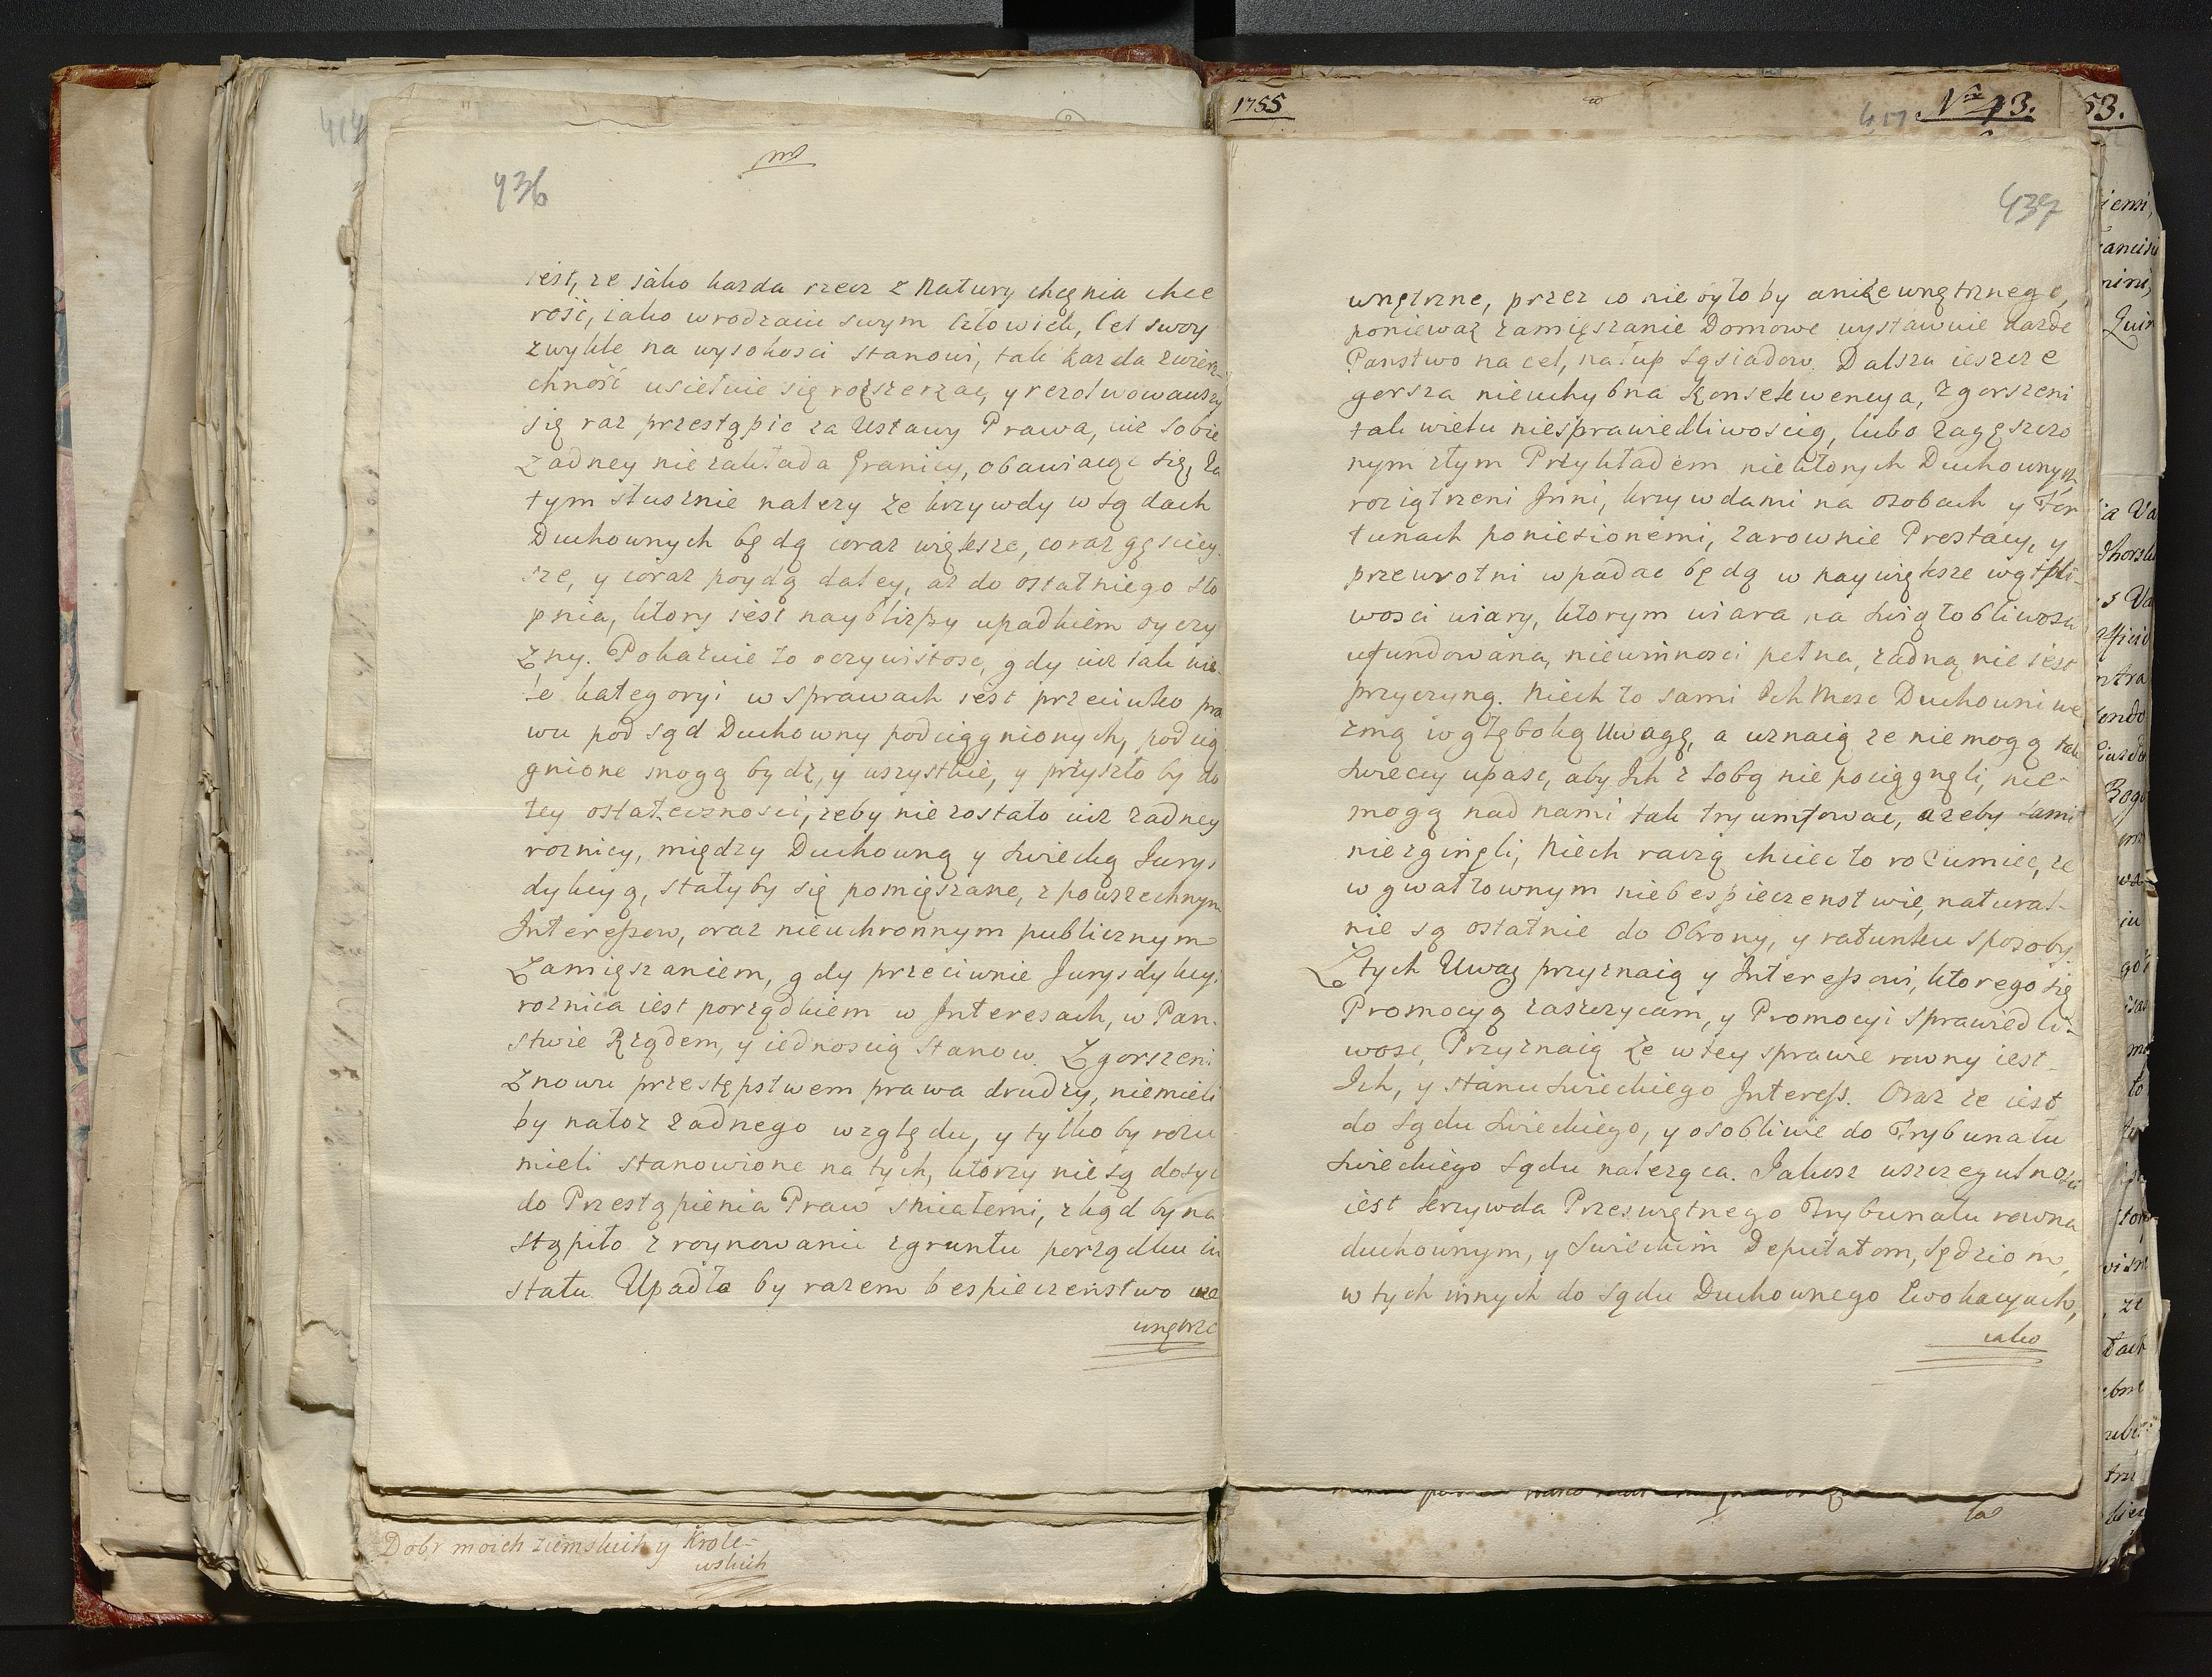 436
iest, ze iako kazda rzecz z Natury chęnia chce
rość, iako wrodzaiu swym Człowiek, Cel swoy
zwykle na wysokosci stanowi, tak kazda zwierz-
chność usiełuie się rozszerzac, y rezolwowawszy
się raz przestąpic za Ustawy Prawa, iuz sobie
Zadney nie zakłada Granicy, obawiaiąc się, za
tym słusznie nalezy ze krzywdy w sądach
Duchownych będą coraz większe, coraz gęsciey-
sze, y coraz poydą daley, az do ostatniego sto
pnia, ktory iest nayblizszy upadkiem oyczy
Zny. Pokazuie to oczywistosc, gdy iuz tak wie-
le kategoryi w sprawach iest przeciwko pra
wu pod sąd Duchowny podciągnionych, podcią
gnione mogą bydz, y wszystkie, y przyszło by do
tey ostatecznosci, zeby nie zostało iuz zadney
roznicy, między Duchowną y swiecką Jurys
dykcyą, stały by się pomięszane, z powszechnym
Interessow, oraz nieuchronnym publicznym
Zamięszaniem, gdy przeciwnie Jurysdykcyi
roznica iest porządkiem w Interesach, w Pan-
stwie Rządem, y iednoscią stanow. Zgorszeni
Znowu przestępstwem prawa drudzy, niemieli
by natoz zadnego względu, y tylko by rozu
mieli stanowione na tych, ktorzy nie są dosyc
do Przestąpienia Praw smiałemi, zkąd by na
stąpiło zroynowanie zgruntu porządku iu
statu. Upadło by razem bespieczenstwo we
wnętrz
Dobr moich ziemskich y Krole-
wskich
1755
417 Nro 13.
53.
437
wnętrzne, przez co nie było by ani zewnętrznego,
poniewaz zamięszanie Domowe wystawuie kazde
Panstwo na cel, na łup sąsiadow. Dalsza ieszcze
gorsza nieuchybna konsekwencya, zgorszeni
tak wielu niesprawiedliwoscią, lubo zagęszczo
nym złym Przykładem niektorych Duchownych
roziątrzeni Inni, krzywdami na osobach y For
tunach poniesionemi, zarownie Prostacy, y
przewrotni wpadac będą w naywiększe wątpli-
wosci wiary, ktorym wiara na swiątobliwosci
ufundowana, niewinnosci pełna, zadną nie iest
przyczyną. Niech to sami Ich Mosc Duchowni we
zmą w głęboką Uwagę, a uznaią ze nie mogą tak
swieccy upasc, aby Ich z sobą nie pociągnęli, nie-
mogą nad nami tak tryumfowac, azeby sami
niezginęli, Niech raczą chciec to rozumiec, ze
w gwałtownym niebespieczenstwie, natural-
nie są ostatnie do Obrony, y ratunku sposoby.
Z tych Uwag przyznaią y Interessowi, ktorego się
Promocyą zaszczycam, y Promocyi sprawiedli-
wosc, Przyznaią ze w tey sprawie rowny iest
Ich, y stanu swieckiego Interess. Oraz ze iest
do sądu swieckiego, y osobliwie do Trybunału
swieckiego sądu naleząca. Jakosz wszczegulnosci
iest krzywda Przeswętnego Trybunału rowna
duchownym, y swieckim Deputatom, sędziom,
w tych innych do sądu Duchownego Ewokacyach,
iako